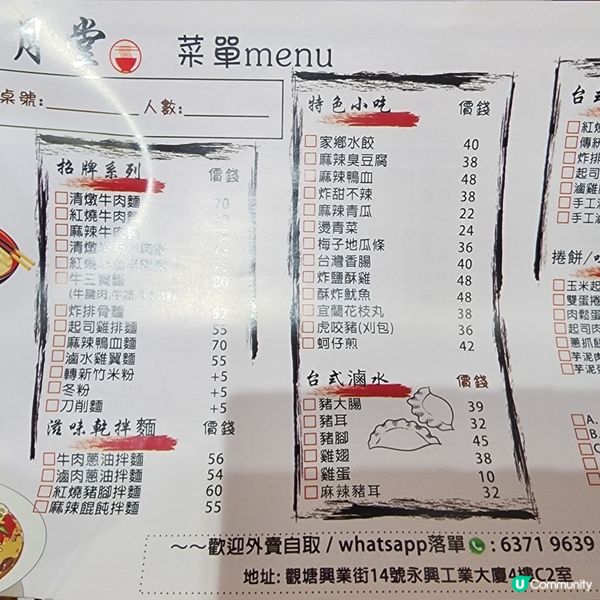 月堂
菜單menu
桌號:________ 人數:________
招牌系列 價錢
清燉牛肉麵
紅燒牛肉麵
麻辣牛肉麵
清燉
紅燒
牛三寶麵 80
(牛腱肉,牛筋,
炸排骨麵 52
起司雞排麵 55
麻辣鴨血麵 70
滷水雞翼麵 55
轉新竹米粉 +5
冬粉 +5
刀削麵 +5
滋味乾拌麵 價錢
牛肉蔥油拌麵 56
滷肉蔥油拌麵 54
紅燒豬腳拌麵 60
麻辣餛飩拌麵 55
特色小吃 價錢
家鄉水餃 40
麻辣臭豆腐 38
麻辣鴨血 48
炸甜不辣 38
麻辣青瓜 22
燙青菜 24
梅子地瓜條 36
台灣香腸 40
炸鹽酥雞 48
酥炸魷魚 48
宜蘭花枝丸 38
虎咬豬(刈包) 36
蚵仔煎 42
台式滷水 價錢
豬大腸 39
豬耳 32
豬腳 45
雞翅 38
雞蛋 10
麻辣豬耳 32
台式
紅燒
傳統
炸排
起司
滷雞
手工
手工
捲餅/
玉米起
雙蛋捲
肉鬆蛋
起司肉
蔥抓餅
芋泥肉
芋泥蛋
A.
B.
C
~~歡迎外賣自取 / whatsapp落單 : 6371 9639
地址: 觀塘興業街14號永興工業大廈4樓C2室
U Community